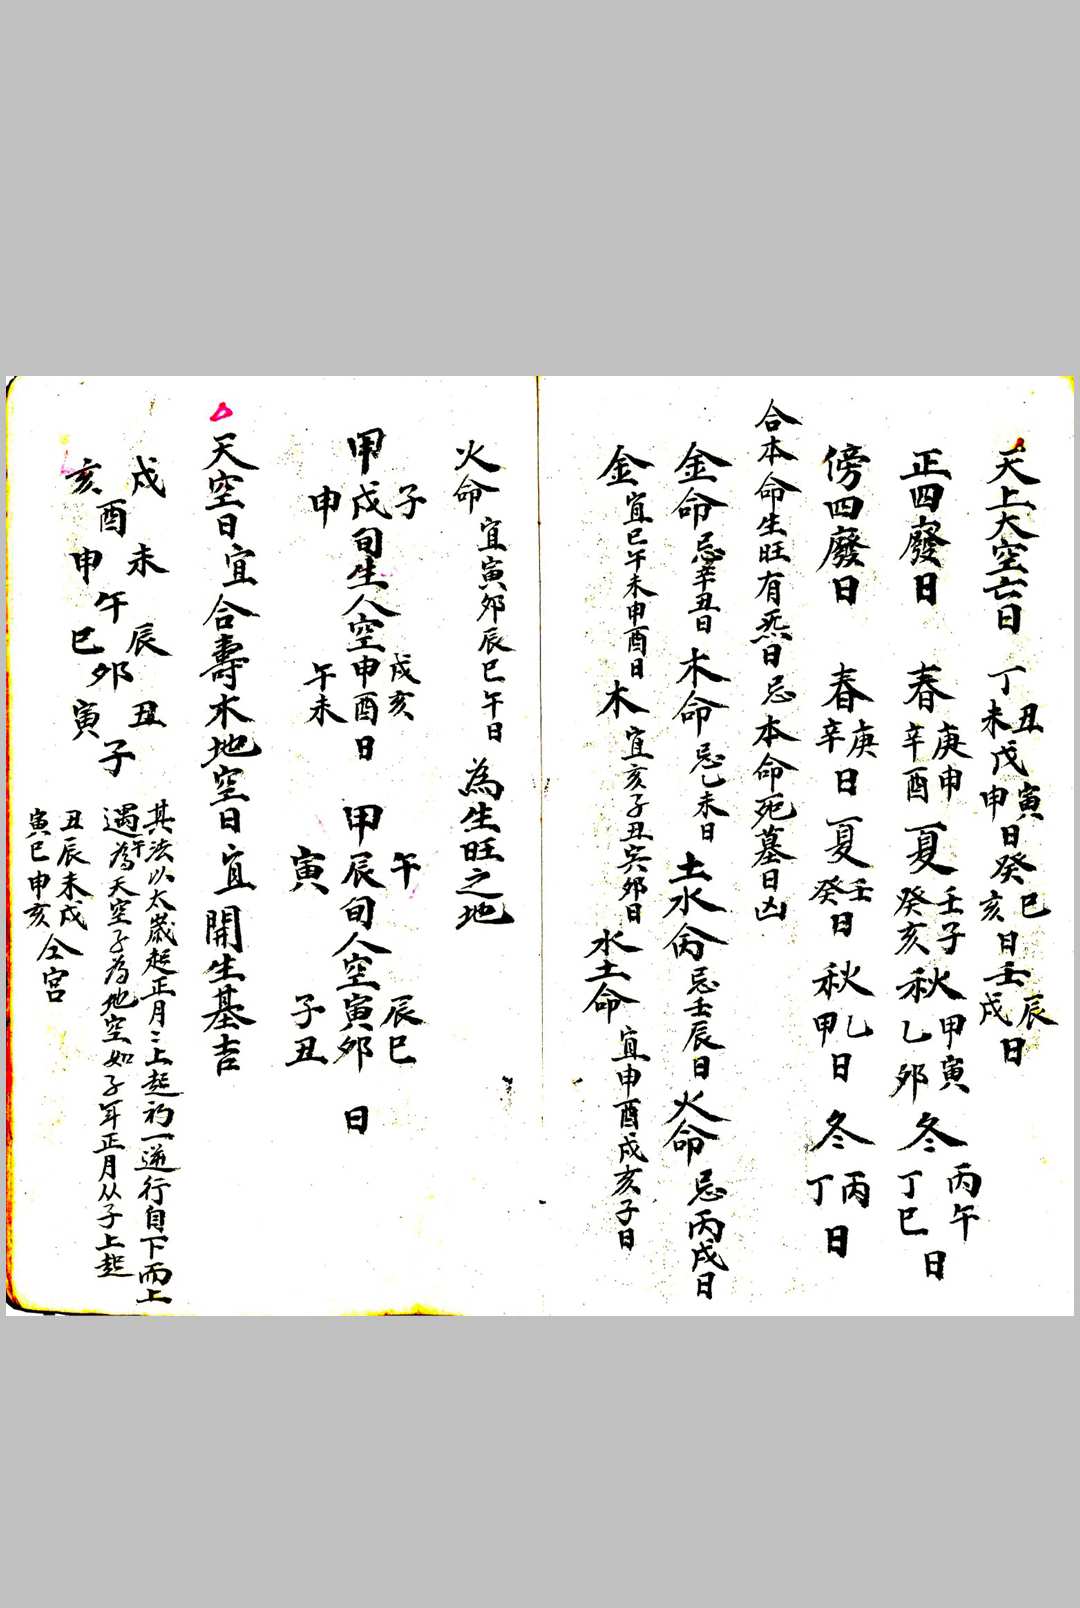 天上大空亡日 丁丑未戊寅申日癸巳亥日壬辰戌日
正四廢日 春庚申辛酉夏壬子癸亥秋甲寅乙卯冬丙午丁巳日
傍四廢日 春庚辛日夏壬癸日秋乙甲日冬丙丁日
合本命生旺有炁日忌本命死墓日凶
金命忌辛丑日木命忌乙未日土水命忌壬辰日火命忌丙戌日
金宜巳午未申酉日木宜亥子丑寅卯日水土命宜申酉戌亥子日
火命宜寅卯辰巳午日為生旺之地
甲子戌申旬生人空戌亥申酉午未日 甲午辰寅旬人空辰巳寅卯子丑日
天空日宜合壽木地空日宜開生基吉
戌 未 辰 丑
亥 酉 申 午 巳 卯 寅 子
其法以太歲起正月〻上起初一逆行自下而上
遇午為天空子為地空如子年正月从子上起
丑辰未戌
寅巳申亥仝宮